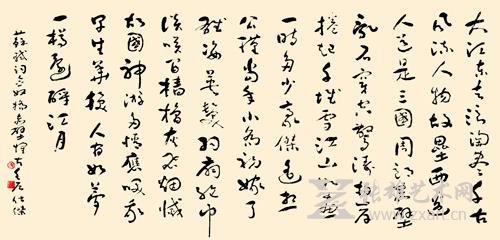 大江东去浪淘尽千古
风流人物故垒西边
人道是三国周郎赤壁
乱石穿空惊涛拍岸
卷起千堆雪江山如画
一时多少豪杰遥想
公瑾当年小乔初嫁了
雄姿英发羽扇纶巾
谈笑间樯橹灰飞烟灭
故国神游多情应笑我
早生华发人生如梦
一樽还酹江月
苏轼词念奴娇赤壁怀古